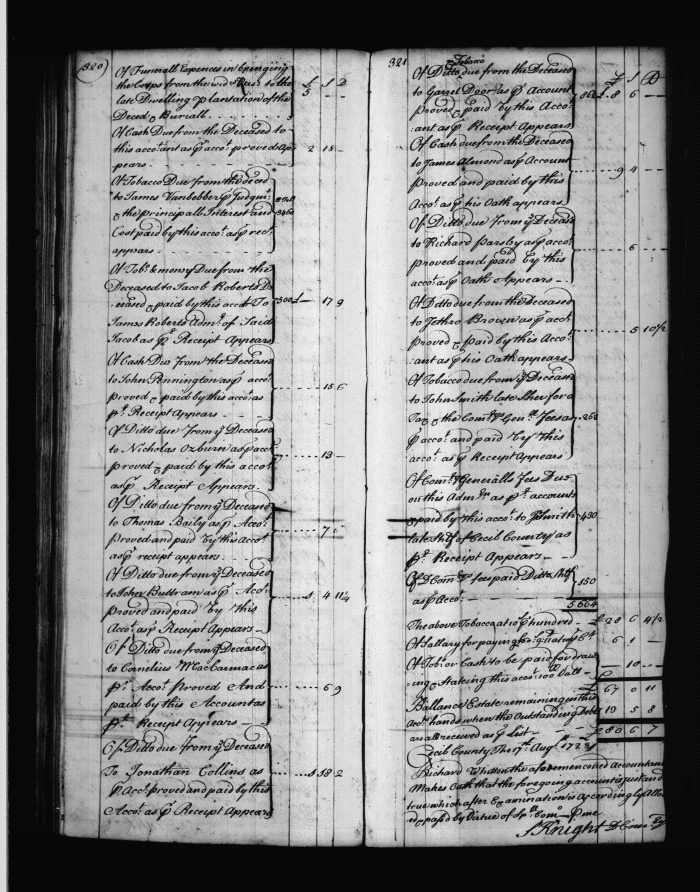 320
Of Funerall Expences in bringing
the Corps from the to the £ S D
late Dwelling Plantation of the 5 — —
Deced & Buriall
Of Cash Due from the Deceased to
this accotant as p accot proved Ap 2 18 —
pears
Of Tobacco Due from the deced
to James Vanbebber p Judgmt
& the Principall Interest and
Cost paid by this accot as p rect
appears
Of Tobo & mony Due from the
Deceased to Jacob Roberts De
ceased & paid by this accot To 17 9
James Roberts Admr of Said
Jacob as pr Receipt Appears
Of Cash Due from the Deceased
to John Pennington as p accot
proved & paid by this accot as 15 6
pr Receipt Appears
Of Ditto due from ye Deceased
to Nicholas Ozburn as p accot
proved & paid by this accot 13 —
as p Receipt Appears
Of Ditto due from ye Deceased
to Thomas Baily as p Accot
Proved and paid by this Accot 7
as p receipt appears
Of Ditto due from ye Deceased
to John Buttram as p Accot
proved and paid by this 4
Accot as p Receipt Appears
Of Ditto due from ye Deceased
to Cornelius MacCarmac as
pr Accot Proved And 6 9
paid by this Accountas
pr Receipt Appears
Of Ditto due from ye Deceased
To Jonathan Collins as
p Accot proved and paid by this
Accot as p Receipt Appears
321
Tobacco
Of Ditto due from the Deceased £ S D
to Garret Door as p Account 8 6 —
Proved & paid by this Acco
ant as p Receipt Appears
Of Cash due from the Deceased
to James Almond as p Account
proved and paid by this 9 4 —
Accot as p his Oath appears
Of Ditto due from ye Deceased
to Richard as p accot
proved and paid by this 6
accot as p Oath Appears
Of Ditto due from the Deceased
to Jethro Brown as p accot
Proved & paid by this Acco 5 10½
ant as p his Oath appears
Of Tobacco due from ye Deceased
to John Smith late Sher for a
Tax & the Comry Genll fees as 260
p accot and paid by this
accot as p Receipt Appears
Of Comry Generalls Fees Due
on this Admr as pr accounts
& paid by this accot to J Smith 430
late Shff of Cecil County as
pr Receipt Appears
Of D Comry fees paid Ditto Shff
as p Accot 550
5664
The above Tobacco at 10/ p hundred £ 28 6 4½
Of Sallary for paying 6 1 —
Of Tobo or Cash to be paid for draw
ing & stateing this accot 100 — 10 —
£ 67 0 11
Ballance Estate remaining in this
Accot hands when the Outstanding Debts 19 5 8
are all received as p List £ 86 6 7
Cecil County The 17th Augt 1728
Richard Whitten the aforementioned accountant
Makes Oath that the foregoing account is just and
true which after Examination is Accordingly Allow
ed & passed by Virtue of Sr Com p me
S Knight D Com Ry